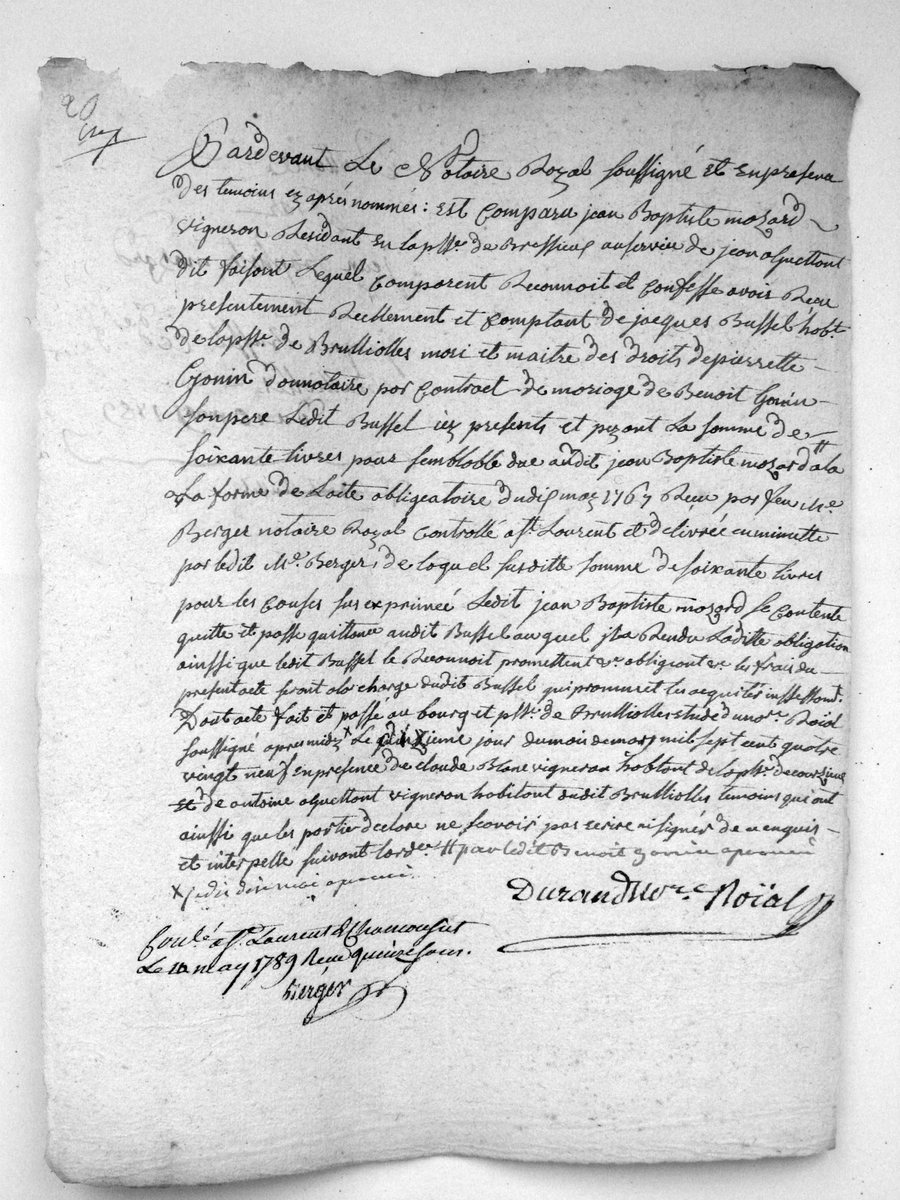 Pardevant Le Notoire Royal soussigné et en presence
des temoins cy aprés nommés : est comparu jean Baptiste mozard
vigneron Residant en la psse. de Bressieu au service de jean
dit foisont Lequel comparent Reconnoit et Confesse avoir Recu
presentement Reellement et comptant de jacques Bussel hobt.
de la psse. de Brulliolles mari et maitre des droits de pierrette
Gonin donnotaire par Contract de moriage de Benoit Gonin
son pere Ledit Bussel icy present et payant La somme de
soixante livres pour semblable due audit jean Baptiste mozard a la
La forme de Lacte obligeatoire du dix may 1767 Recu par feu Me.
Berger notaire Royal Controllé a St. Laurent et delivrée en minutte
par ledit Me. Berger, de loquel susditte somme de soixante livres
pour les couses sus expriméé Ledit jean Baptiste mozard se contente
quitte et passe quittance audit Bussel au quel il a Rendu Laditte obligation
ainssi que ledit Bussel le Reconnoit promettent &c. obligeant &c. les frais du
present acte seront a la charge dudit Bussel qui prommet les acquiter
Dont acte fait et passé au bourg et psse. de Brulliolles étude du nore. Roial
soussigné apres midy Le dixieme jour du mois de mars mil sept cent quatre
vingt neuf en presence de claude Blanc vigneron hobitont de la psse. de courzieu
et de antoine vigneron habitont dudit Brulliolles temoins qui ont
ainssi que les partie declare ne scavoir pas ecrire ni signer de ce enquis
et interpelle suivant lordce. # par ledit Benoit Gonin approuvé
x dix approuvé
Durand Nore. Roïal
Conlé. a St. Laurent de Chamousset
Le 10 may 1789 Recu quinze sous.
Berger